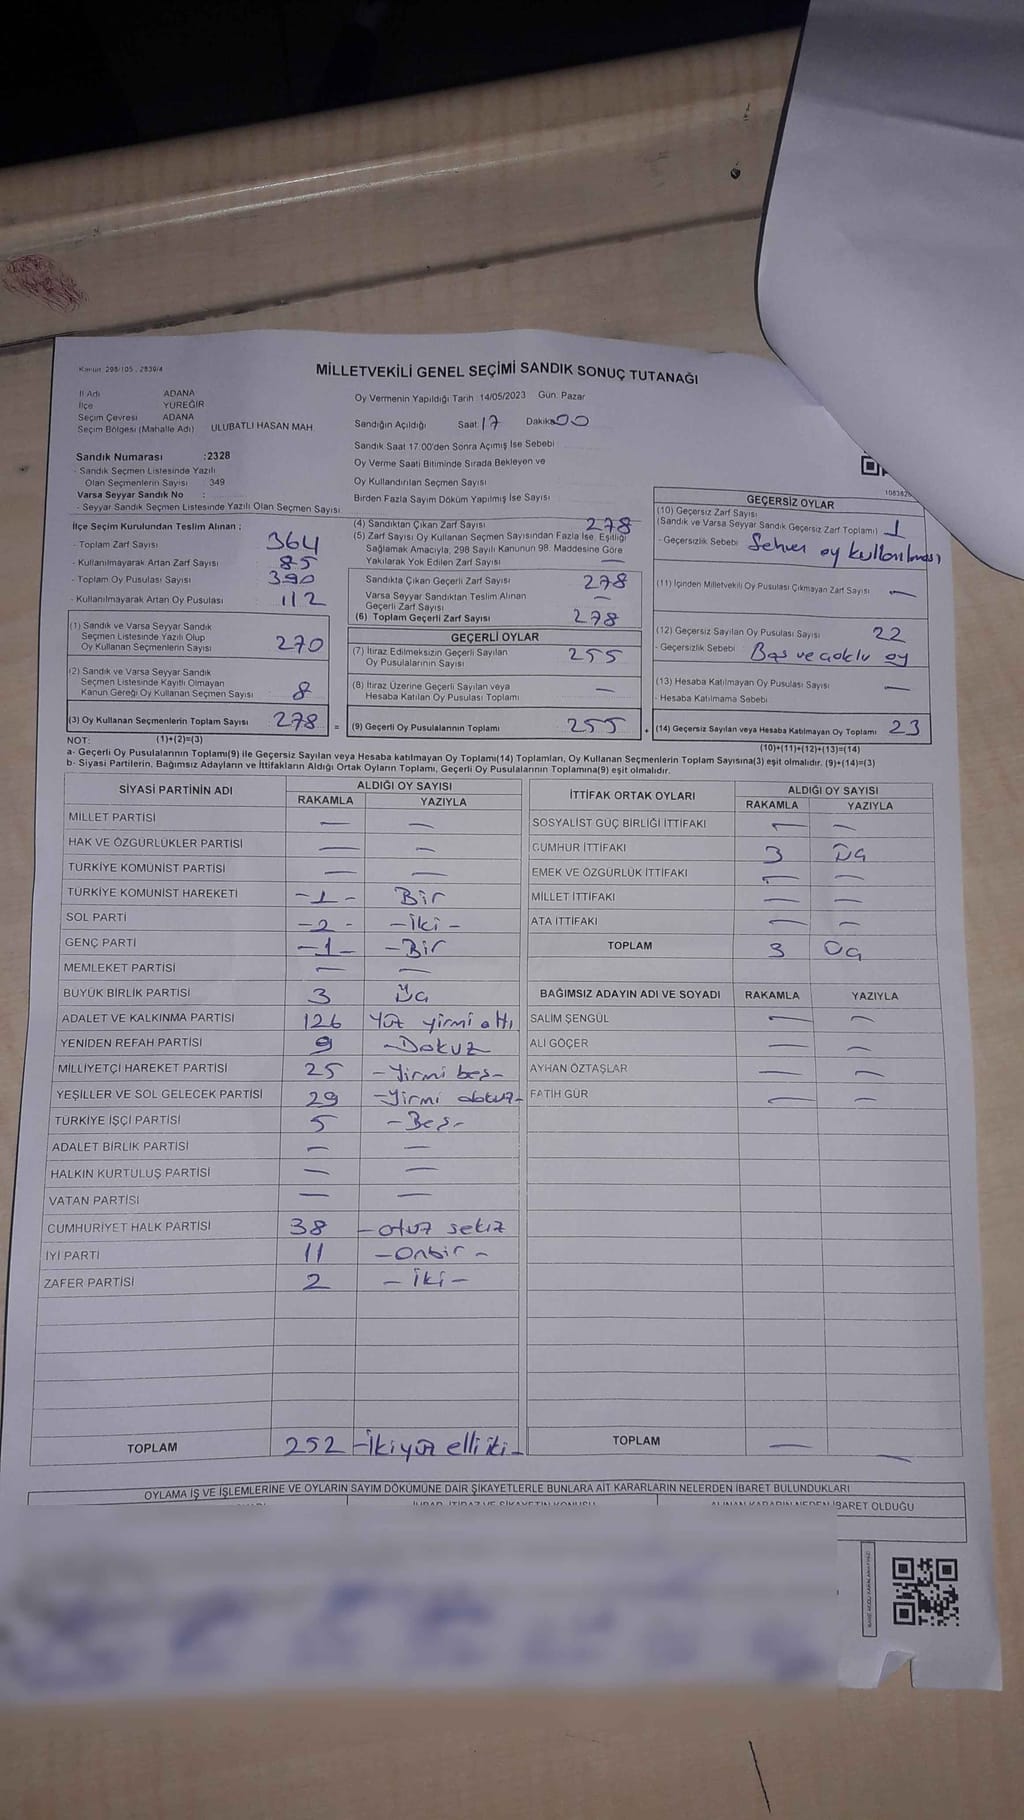 Kanun: 298/105 , 2839/4
MİLLETVEKİLİ GENEL SEÇİMİ SANDIK SONUÇ TUTANAĞI
İl Adı ADANA
İlçe YÜREĞİR
Seçim Çevresi ADANA
Seçim Bölgesi (Mahalle Adı) ULUBATLI HASAN MAH.
Oy Vermenin Yapıldığı Tarih 14/05/2023 Gün: Pazar
Sandığın Açıldığı Saat 17 Dakika 00
Sandık Saat 17:00'den Sonra Açılmış İse Sebebi
Oy Verme Saati Bitiminde Sırada Bekleyen ve
Oy Kullandırılan Seçmen Sayısı
Birden Fazla Sayım Döküm Yapılmış İse Sayısı
Sandık Numarası :2328
- Sandık Seçmen Listesinde Yazılı
Olan Seçmenlerin Sayısı 349
Varsa Seyyar Sandık No :
- Seyyar Sandık Seçmen Listesinde Yazılı Olan Seçmen Sayısı
İlçe Seçim Kurulundan Teslim Alınan ;
- Toplam Zarf Sayısı 364
- Kullanılmayarak Artan Zarf Sayısı 85
- Toplam Oy Pusulası Sayısı 390
- Kullanılmayarak Artan Oy Pusulası 112
(1) Sandık ve Varsa Seyyar Sandık
Seçmen Listesinde Yazılı Olup
Oy Kullanan Seçmenlerin Sayısı 270
(2) Sandık ve Varsa Seyyar Sandık
Seçmen Listesinde Kayıtlı Olmayan
Kanun Gereği Oy Kullanan Seçmen Sayısı 8
(3) Oy Kullanan Seçmenlerin Toplam Sayısı 278 =
(4) Sandıktan Çıkan Zarf Sayısı 278
(5) Zarf Sayısı Oy Kullanan Seçmen Sayısından Fazla İse, Eşitliği
Sağlamak Amacıyla, 298 Sayılı Kanunun 98. Maddesine Göre
Yakılarak Yok Edilen Zarf Sayısı —
Sandıkta Çıkan Geçerli Zarf Sayısı 278
Varsa Seyyar Sandıktan Teslim Alınan
Geçerli Zarf Sayısı —
(6) Toplam Geçerli Zarf Sayısı 278
GEÇERLİ OYLAR
(7) İtiraz Edilmeksizin Geçerli Sayılan
Oy Pusulalarının Sayısı 255
(8) İtiraz Üzerine Geçerli Sayılan veya
Hesaba Katılan Oy Pusulası Toplamı —
(9) Geçerli Oy Pusulalarının Toplamı 255 +
GEÇERSİZ OYLAR
(10) Geçersiz Zarf Sayısı
(Sandık ve Varsa Seyyar Sandık Geçersiz Zarf Toplamı) 1
- Geçersizlik Sebebi Sehven oy kullanılması
(11) İçinden Milletvekili Oy Pusulası Çıkmayan Zarf Sayısı —
(12) Geçersiz Sayılan Oy Pusulası Sayısı 22
- Geçersizlik Sebebi Boş ve çoklu oy
(13) Hesaba Katılmayan Oy Pusulası Sayısı —
- Hesaba Katılmama Sebebi
(14) Geçersiz Sayılan veya Hesaba Katılmayan Oy Toplamı 23
NOT: (1)+(2)=(3)
(10)+(11)+(12)+(13)=(14)
a- Geçerli Oy Pusulalarının Toplamı(9) ile Geçersiz Sayılan veya Hesaba katılmayan Oy Toplamı(14) Toplamları, Oy Kullanan Seçmenlerin Toplam Sayısına(3) eşit olmalıdır. (9)+(14)=(3)
b- Siyasi Partilerin, Bağımsız Adayların ve İttifakların Aldığı Ortak Oyların Toplamı, Geçerli Oy Pusulalarının Toplamına(9) eşit olmalıdır.
SİYASİ PARTİNİN ADI ALDIĞI OY SAYISI
RAKAMLA YAZIYLA
MİLLET PARTİSİ — —
HAK VE ÖZGÜRLÜKLER PARTİSİ — —
TÜRKİYE KOMÜNİST PARTİSİ — —
TÜRKİYE KOMÜNİST HAREKETİ -1- Bir
SOL PARTİ -2- -İki-
GENÇ PARTİ -1- -Bir
MEMLEKET PARTİSİ — —
BÜYÜK BİRLİK PARTİSİ 3 Üç
ADALET VE KALKINMA PARTİSİ 126 Yüz yirmi altı
YENİDEN REFAH PARTİSİ 9 -Dokuz
MİLLİYETÇİ HAREKET PARTİSİ 25 -Yirmi beş-
YEŞİLLER VE SOL GELECEK PARTİSİ 29 -Yirmi dokuz-
TÜRKİYE İŞÇİ PARTİSİ 5 -Beş-
ADALET BİRLİK PARTİSİ — —
HALKIN KURTULUŞ PARTİSİ — —
VATAN PARTİSİ — —
CUMHURİYET HALK PARTİSİ 38 -otuz sekiz
İYİ PARTİ 11 -Onbir-
ZAFER PARTİSİ 2 -İki-
TOPLAM 252 -İkiyüz elli iki-
İTTİFAK ORTAK OYLARI ALDIĞI OY SAYISI
RAKAMLA YAZIYLA
SOSYALİST GÜÇ BİRLİĞİ İTTİFAKI — —
CUMHUR İTTİFAKI 3 Üç
EMEK VE ÖZGÜRLÜK İTTİFAKI — —
MİLLET İTTİFAKI — —
ATA İTTİFAKI — —
TOPLAM 3 Üç
BAĞIMSIZ ADAYIN ADI VE SOYADI RAKAMLA YAZIYLA
SALİM ŞENGÜL — —
ALİ GÖÇER — —
AYHAN ÖZTAŞLAR — —
FATİH GÜR — —
TOPLAM — —
OYLAMA İŞ VE İŞLEMLERİNE VE OYLARIN SAYIM DÖKÜMÜNE DAİR ŞİKAYETLERLE BUNLARA AİT KARARLARIN NELERDEN İBARET BULUNDUKLARI
ALINAN KARARIN NEDEN İBARET OLDUĞU